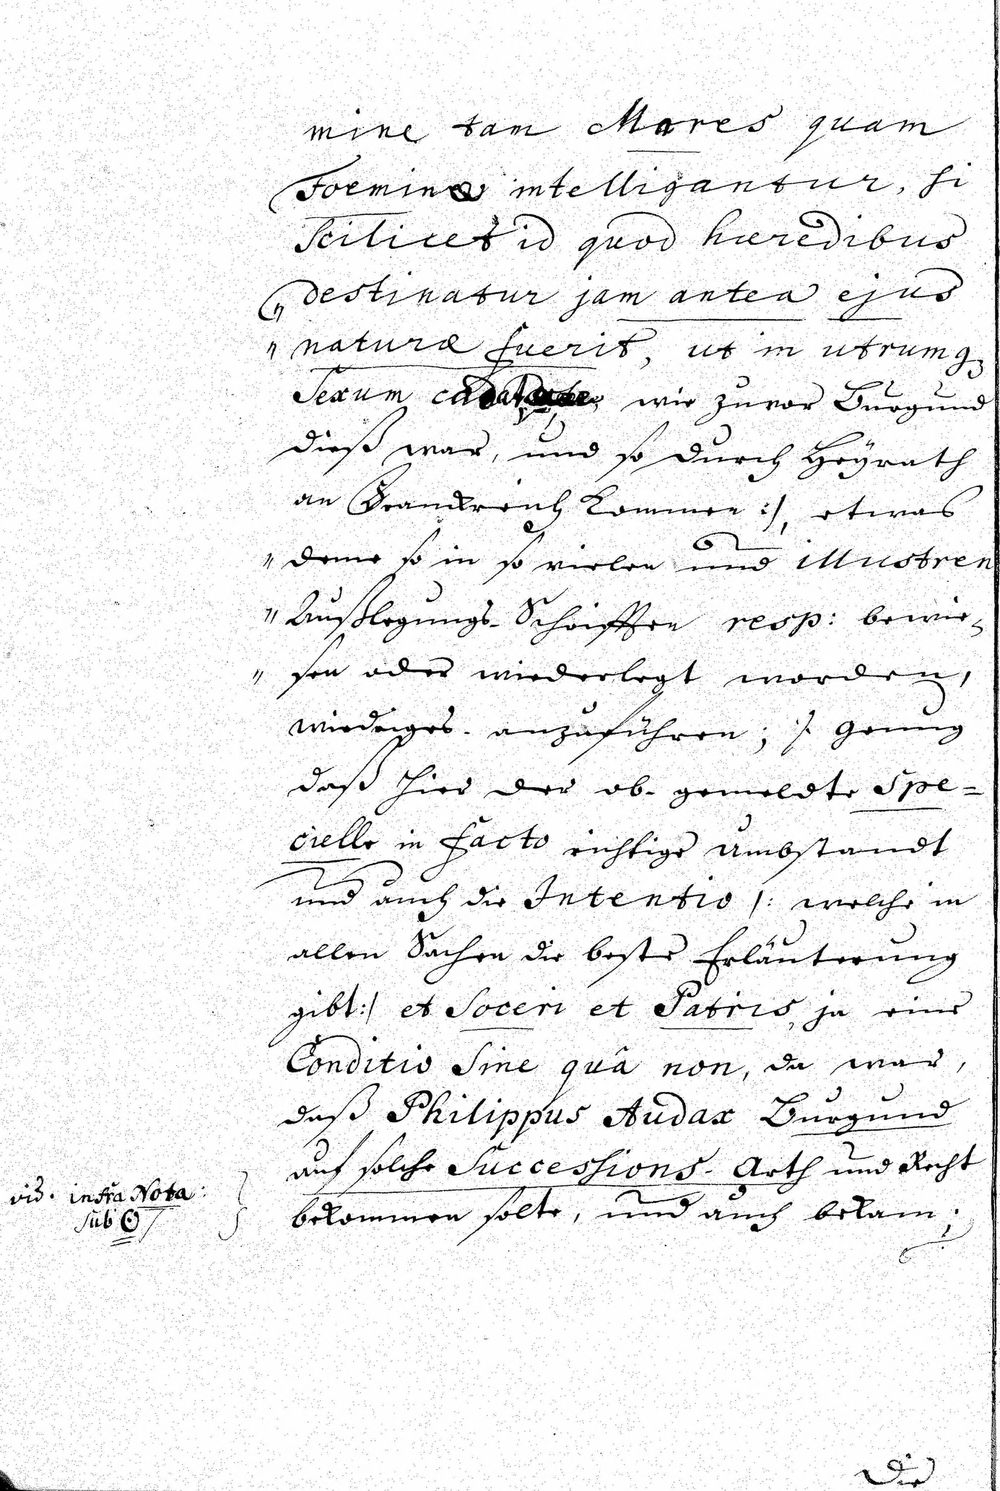 mine tam Mares quam
Foeminæ intelligantur, si
Scilicet id quod hæredibus
destinatur jam antea ejus
naturæ fuerit, ut in utrumq
Sexum cadat wie zuvor Burgund
dieß war, und so durch Heÿrath
an Franckreich kommen :/, etwas
deme so in so vielen und illustren
Außlegungs-Schrifften resp: bewie-
sen oder wiederlegt worden,
wiedriges anzuführen; /. genug
daß hier der ob-gemeldte Spe=
cielle in facto richtige Umbstandt
und auch die Intentio /: welche in
allen Sachen die beste Erläuterung
gibt:/ et Soceri et Patris, ja eine
Conditio Sine quâ non, da war,
daß Philippus Audax Burgund
auf solche Successions-Arth und Recht
bekommen solte, und auch bekam;
vid. infra Nota:
sub ☉/
Die